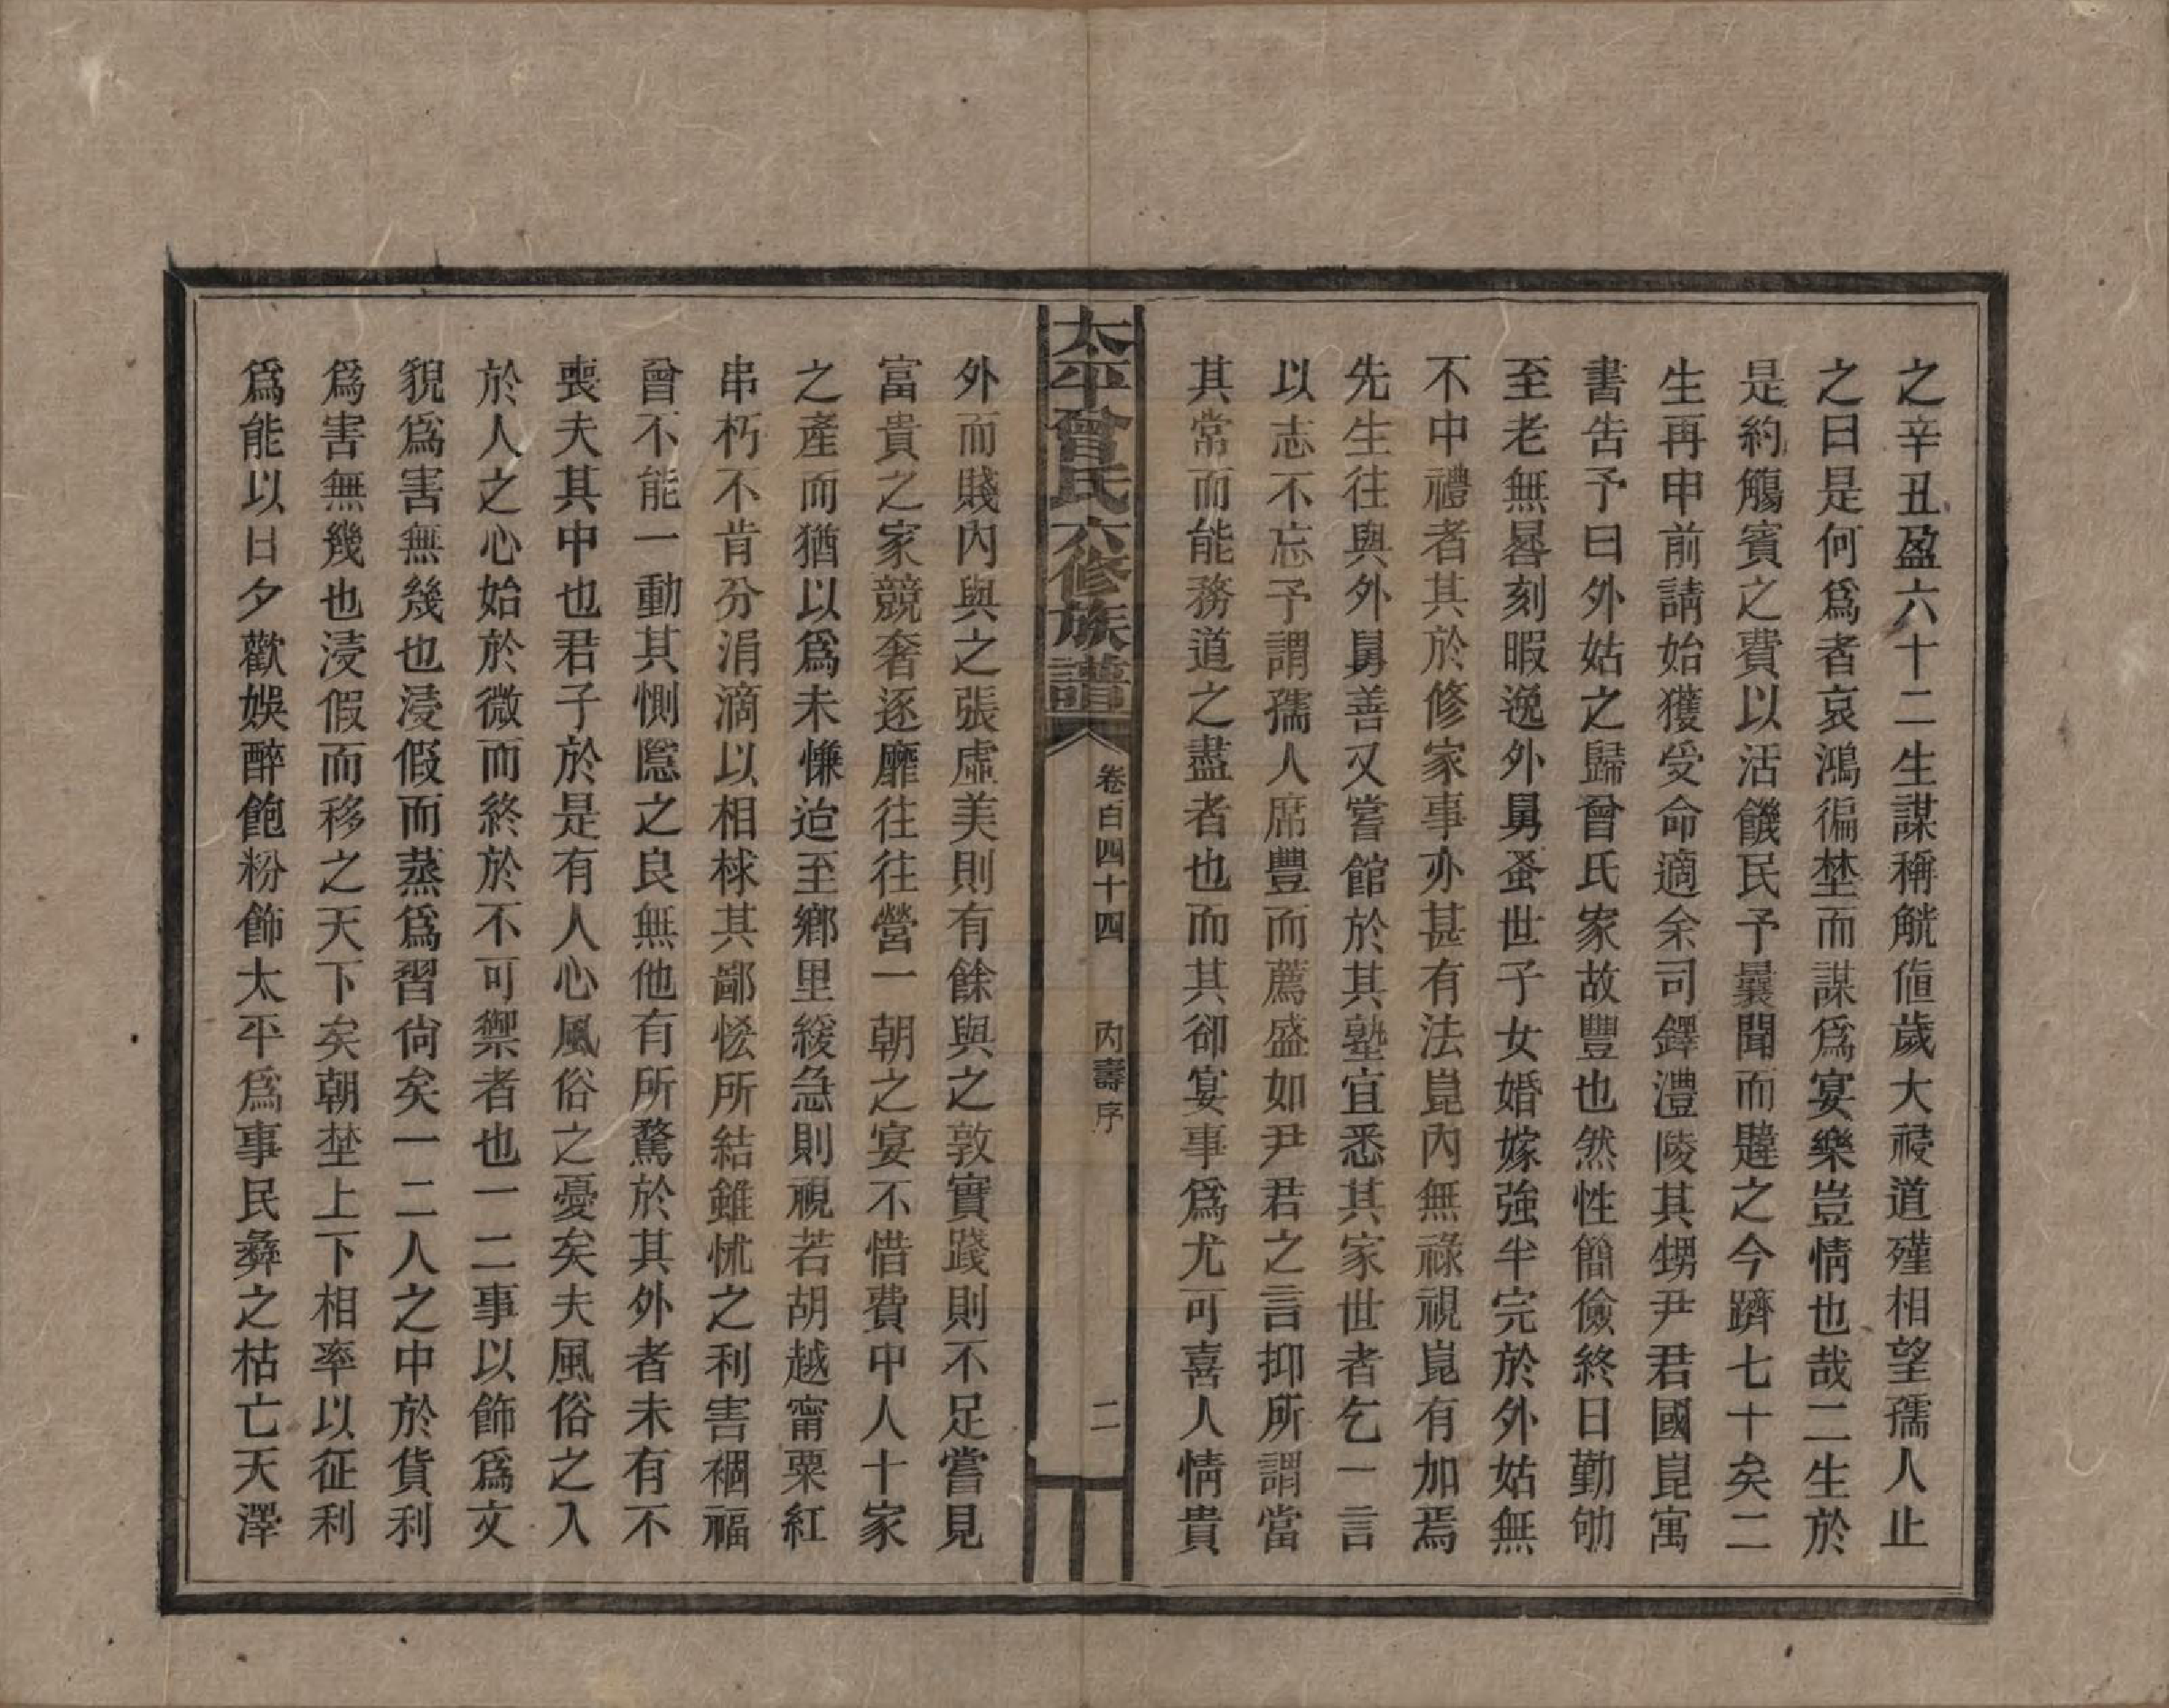 之辛丑盈六十二生謀稱觥値歲大祲道殣相望孺人止
之曰是何爲者哀鴻徧埜而謀爲宴樂豈情也哉二生於
是約觴賓之費以活饑民予曩聞而韙之今躋七十矣二
生再申前請始獲受命適余司鐸澧陵其甥尹君國崑寓
書告予曰外姑之歸曾氏家故豐也然性簡儉終日勤劬
至老無晷刻暇逸外舅蚤世子女婚嫁強半完於外姑無
不中禮者其於修家事亦甚有法崑內無祿視崑有加焉
先生往與外舅善又嘗館於其塾宜悉其家世者乞一言
以志不忘予謂孺人席豐而薦盛如尹君之言抑所謂當
其常而能務道之盡者也而其卻宴事爲尤可喜人情貴
太平曾氏六修族譜
卷百四十四
內壽序
二
外而賤內與之張虛美則有餘與之敦實踐則不足嘗見
富貴之家競奢逐靡往往營一朝之宴不惜費中人十家
之產而猶以爲未慊迨至鄉里緩急則視若胡越甯粟紅
串朽不肯分涓滴以相捄其鄙恡所結雖怵之利害禍福
曾不能一動其惻隱之良無他有所騖於其外者未有不
喪夫其中也君子於是有人心風俗之憂矣夫風俗之入
於人之心始於微而終於不可禦者也一二事以飾爲文
貌爲害無幾也浸假而蒸爲習尙矣一二人之中於貨利
爲害無幾也浸假而移之天下矣朝埜上下相率以征利
爲能以日夕歡娛醉飽粉飾太平爲事民彝之枯亡天澤